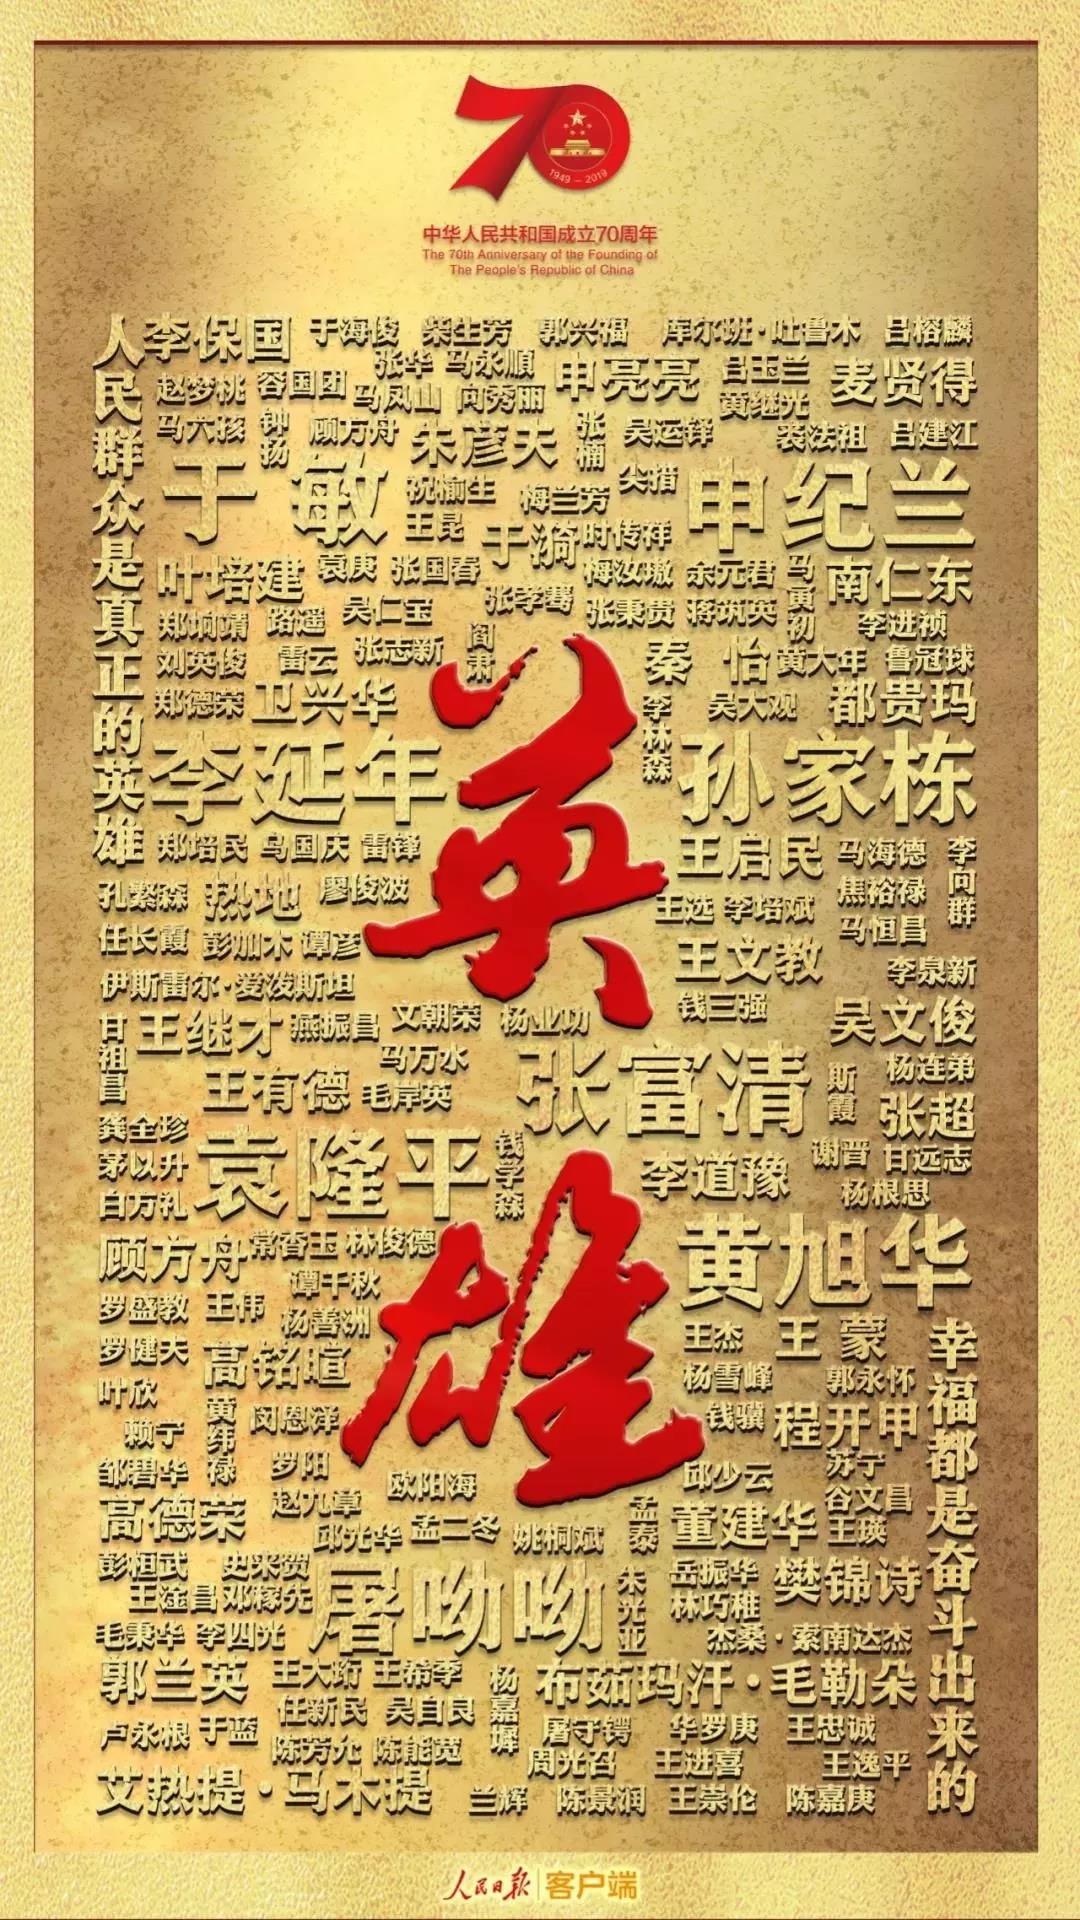 70
1949 - 2019
中华人民共和国成立70周年
The 70th Anniversary of the Founding of
The People's Republic of China
人民群众是真正的英雄
李保国 于海俊 柴生芳 郭兴福 库尔班·吐鲁木 吕榕麟
张华 马永顺 申亮亮 吕玉兰 麦贤得
赵梦桃 容国团 马凤山 向秀丽 黄继光
马六孩 钟扬 顾方舟 朱彦夫 张楠 吴运铎 裘法祖 吕建江
于敏 祝榆生 梅兰芳 尖措 申纪兰
王昆 于漪 时传祥
叶培建 袁庚 张国春 梅汝璈 余元君 马寅初 南仁东
郑垧靖 路遥 吴仁宝 张孝骞 张秉贵 蒋筑英 李进祯
刘英俊 雷云 张志新 阎肃 秦怡 黄大年 鲁冠球
郑德荣 卫兴华 李林森 吴大观 都贵玛
李延年 英 孙家栋
郑培民 乌国庆 雷锋 王启民 马海德 李向群
孔繁森 热地 廖俊波 王选 李培斌 焦裕禄
任长霞 彭加木 谭彦 王文教 马恒昌
伊斯雷尔·爱泼斯坦 李泉新
甘祖昌 王继才 燕振昌 文朝荣 杨业功 钱三强 吴文俊
马万水 张富清 斯霞 杨连弟
王有德 毛岸英 张超
龚全珍 袁隆平 钱学森 李道豫 谢晋 甘远志
茅以升 杨根思
白方礼
顾方舟 常香玉 林俊德 雄 黄旭华
谭千秋
罗盛教 王伟 杨善洲 王杰 王蒙
罗健夫 高铭暄 杨雪峰 郭永怀
叶欣 黄纬禄 闵恩泽 钱骥 程开甲
赖宁
邹碧华 罗阳 欧阳海 邱少云 苏宁
高德荣 赵九章 孟泰 董建华 谷文昌
邱光华 孟二冬 姚桐斌 王瑛
彭桓武 史来贺 屠呦呦 朱光亚 岳振华 樊锦诗
王淦昌 邓稼先 林巧稚
毛秉华 李四光 杰桑·索南达杰
郭兰英 王大珩 王希季 杨嘉墀 布茹玛汗·毛勒朵
任新民 吴自良
卢永根 于蓝 屠守锷 华罗庚 王忠诚
陈芳允 陈能宽 周光召 王进喜 王逸平
艾热提·马木提 兰辉 陈景润 王崇伦 陈嘉庚
幸福都是奋斗出来的
人民日报 客户端